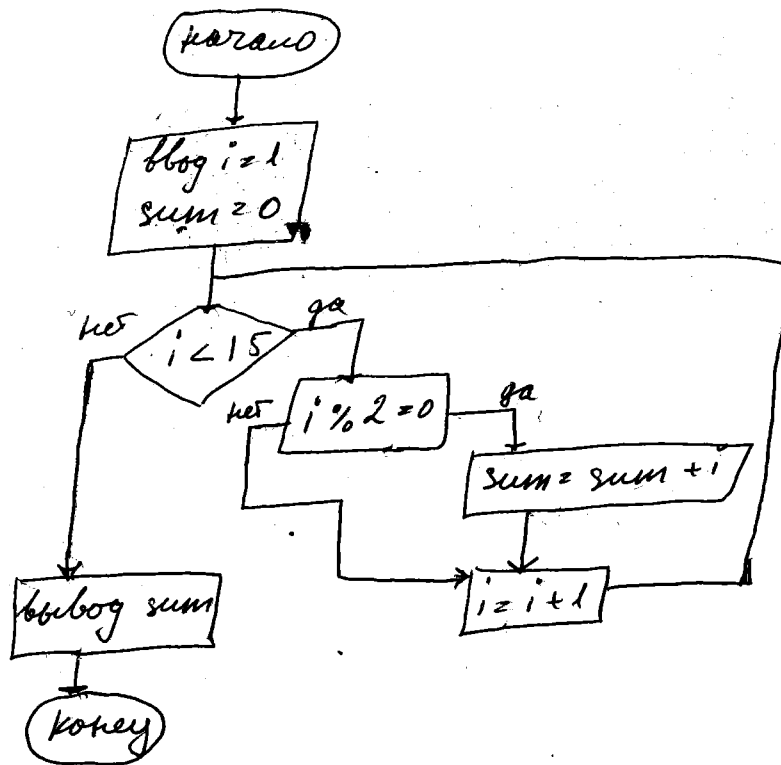 начало
ввод i=1
sum=0
нет
да
i<15
нет
i%2=0
да
sum=sum+i
i=i+1
вывод sum
конец